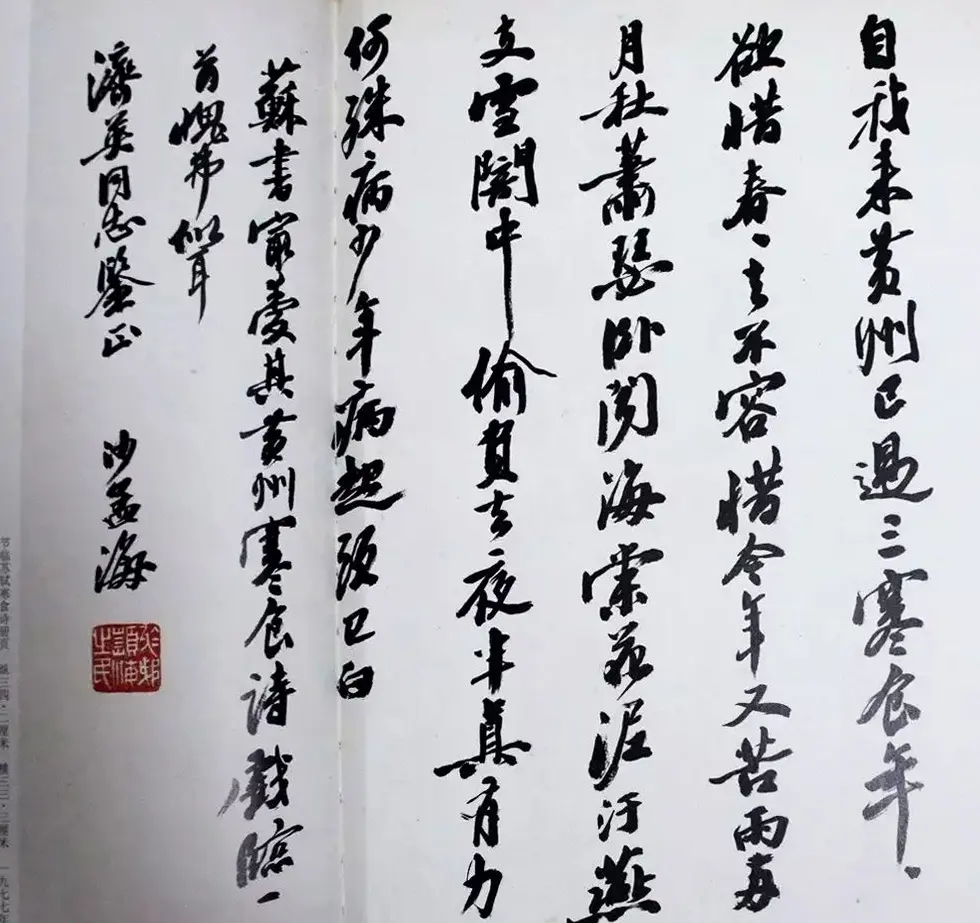 自我來黃州已過三寒食年、
欲惜春、去不容惜今年又苦雨兩
月秋蕭瑟臥聞海棠花泥汙燕
支雪闇中偷負去夜半真有力
何殊病少年病起頭已白
蘇書最愛其黃州寒食詩戲臨一
首愧弗似耳
濟英同志鑒正 沙孟海
节临苏轼寒食诗册页 纵三四·二厘米 横三三·二厘米 一九七七年